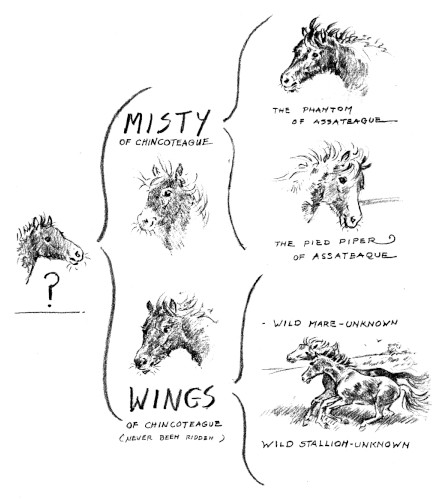 ?
MISTY
OF CHINCOTEAGUE
WINGS
OF CHINCOTEAGUE
(NEVER BEEN RIDDEN)
THE PHANTOM
OF ASSATEAGUE
THE PIED PIPER
OF ASSATEAGUE
- WILD MARE-UNKNOWN
WILD STALLION-UNKNOWN